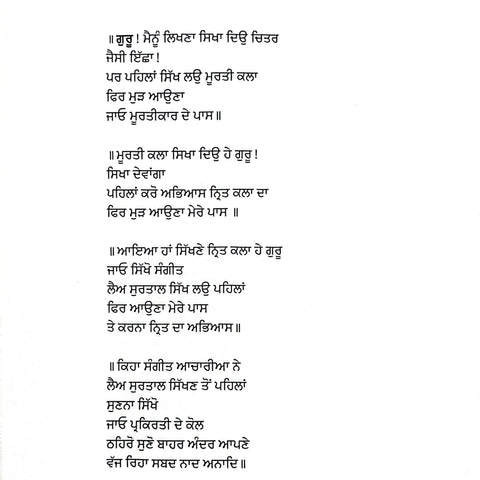 ॥ ਗੁਰੂ ! ਮੈਨੂੰ ਲਿਖਣਾ ਸਿਖਾ ਦਿਉ ਚਿਤਰ
ਜੈਸੀ ਇੱਛਾ !
ਪਰ ਪਹਿਲਾਂ ਸਿੱਖ ਲਉ ਮੂਰਤੀ ਕਲਾ
ਫਿਰ ਮੁੜ ਆਉਣਾ
ਜਾਓ ਮੂਰਤੀਕਾਰ ਦੇ ਪਾਸ॥
॥ ਮੂਰਤੀ ਕਲਾ ਸਿਖਾ ਦਿਉ ਹੇ ਗੁਰੂ !
ਸਿਖਾ ਦੇਵਾਂਗਾ
ਪਹਿਲਾਂ ਕਰੋ ਅਭਿਆਸ ਨ੍ਰਿਤ ਕਲਾ ਦਾ
ਫਿਰ ਮੁੜ ਆਉਣਾ ਮੇਰੇ ਪਾਸ ॥
॥ ਆਇਆ ਹਾਂ ਸਿੱਖਣੇ ਨ੍ਰਿਤ ਕਲਾ ਹੇ ਗੁਰੂ
ਜਾਓ ਸਿੱਖੋ ਸੰਗੀਤ
ਲੈਅ ਸੁਰਤਾਲ ਸਿੱਖ ਲਉ ਪਹਿਲਾਂ
ਫਿਰ ਆਉਣਾ ਮੇਰੇ ਪਾਸ
ਤੇ ਕਰਨਾ ਨ੍ਰਿਤ ਦਾ ਅਭਿਆਸ॥
॥ ਕਿਹਾ ਸੰਗੀਤ ਆਚਾਰੀਆ ਨੇ
ਲੈਅ ਸੁਰਤਾਲ ਸਿੱਖਣ ਤੋਂ ਪਹਿਲਾਂ
ਸੁਣਨਾ ਸਿੱਖੋ
ਜਾਓ ਪ੍ਰਕਿਰਤੀ ਦੇ ਕੋਲ
ਠਹਿਰੋ ਸੁਣੋ ਬਾਹਰ ਅੰਦਰ ਆਪਣੇ
ਵੱਜ ਰਿਹਾ ਸਬਦ ਨਾਦ ਅਨਾਦਿ॥